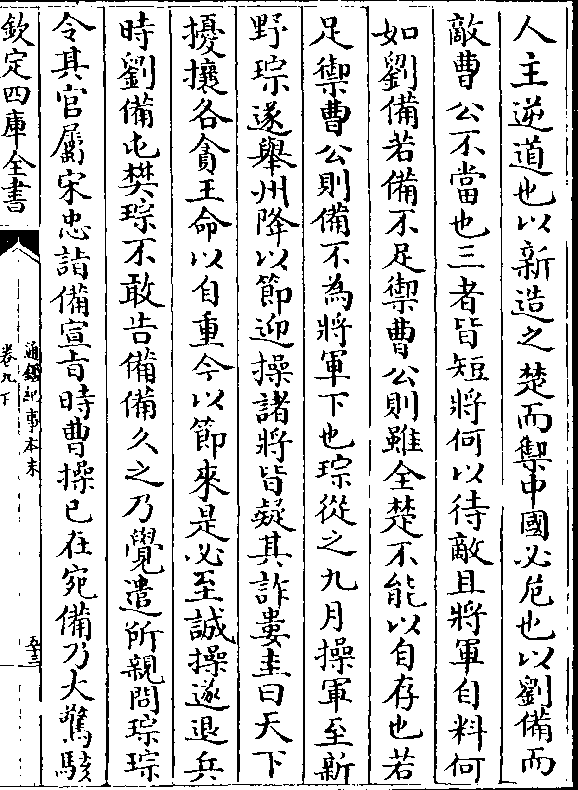 人主逆道也以新造之楚而禦中國必危也以劉備而
敵曹公不當也三者皆短將何以待敵且將軍自料何
如劉備若備不足禦曹公則雖全楚不能以自存也若
足禦曹公則備不為將軍下也琮從之九月操軍至新
野琮遂舉州降以節迎操諸將皆疑其詐婁圭曰天下
擾攘各貪王命以自重今以節來是必至誠操遂退兵
時劉備屯樊琮不敢告備備久之乃覺遣所親問琮琮
令其官屬宋忠詣備宣旨時曹操已在宛備乃大驚駭
欽定四庫全書
通鑑紀事本末
卷九下
五十三